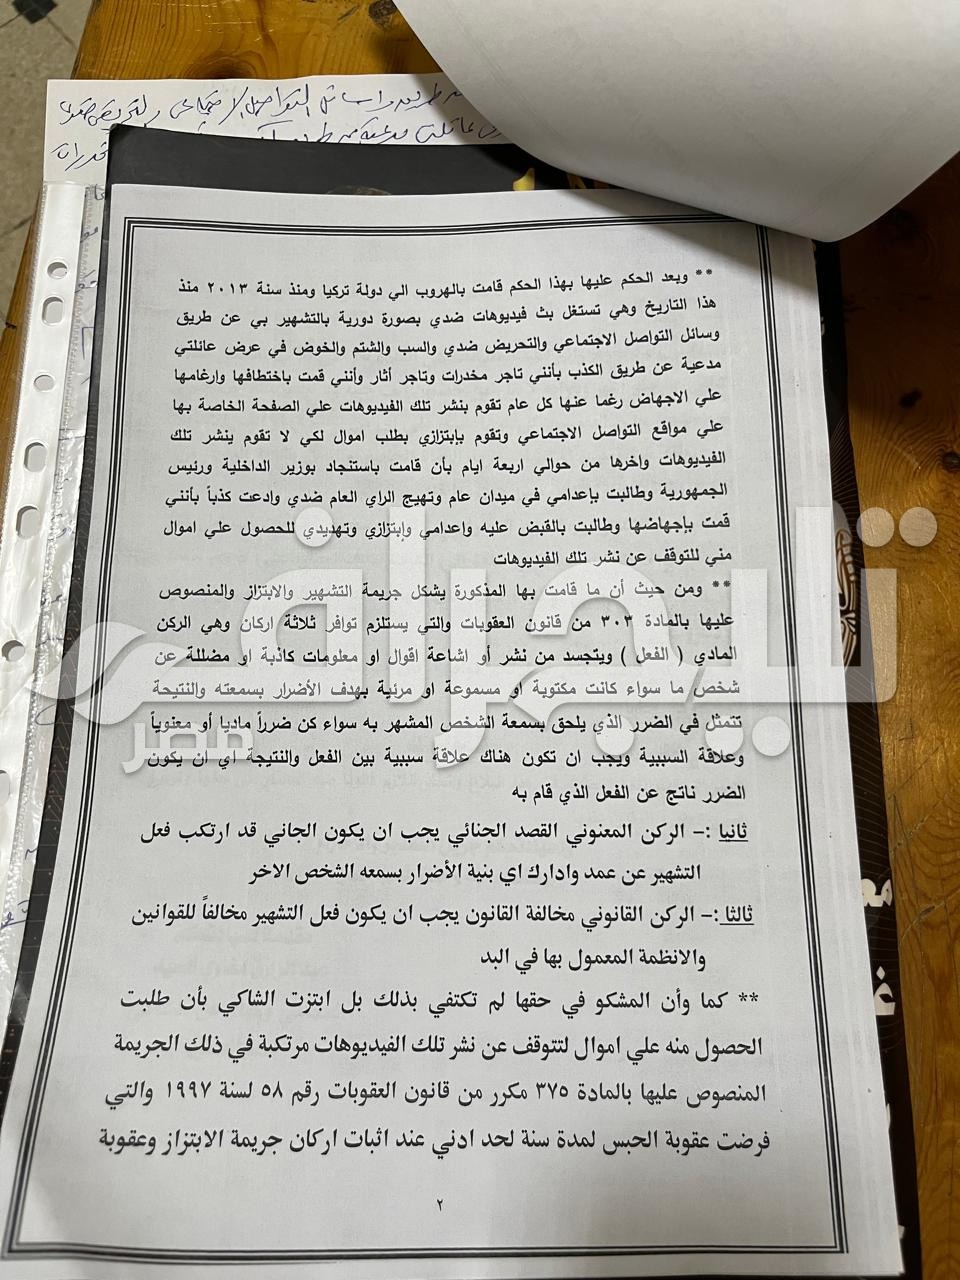 عن طريق وسائل التواصل الاجتماعي والتحريض ضدي
** وبعد الحكم عليها بهذا الحكم قامت بالهروب الي دولة تركيا ومنذ سنة ٢٠١٣ منذ
هذا التاريخ وهي تستغل بث فيديوهات ضدي بصورة دورية بالتشهير بي عن طريق
وسائل التواصل الاجتماعي والتحريض ضدي والسب والشتم والخوض في عرض عائلتي
مدعية عن طريق الكذب بأنني تاجر مخدرات وتاجر أثار وأنني قمت باختطافها وارغامها
علي الاجهاض رغما عنها كل عام تقوم بنشر تلك الفيديوهات علي الصفحة الخاصة بها
علي مواقع التواصل الاجتماعي وتقوم بإبتزازي بطلب اموال لكي لا تقوم ينشر تلك
الفيديوهات واخرها من حوالي اربعة ايام بأن قامت باستنجاد بوزير الداخلية ورئيس
الجمهورية وطالبت بإعدامي في ميدان عام وتهيج الراي العام ضدي وادعت كذباً بأنني
قمت بإجهاضها وطالبت بالقبض عليه واعدامي وإبتزازي وتهديدي للحصول علي اموال
مني للتوقف عن نشر تلك الفيديوهات
** ومن حيث أن ما قامت بها المذكورة يشكل جريمة التشهير والابتزاز والمنصوص
عليها بالمادة ٣٠٣ من قانون العقوبات والتي يستلزم توافر ثلاثة اركان وهي الركن
المادي ( الفعل ) ويتجسد من نشر أو اشاعة اقوال او معلومات كاذبة او مضللة عن
شخص ما سواء كانت مكتوبة او مسموعة او مرئية بهدف الأضرار بسمعته والنتيجة
تتمثل في الضرر الذي يلحق بسمعة الشخص المشهر به سواء كن ضرراً ماديا أو معنوياً
وعلاقة السببية ويجب ان تكون هناك علاقة سببية بين الفعل والنتيجة اي ان يكون
الضرر ناتج عن الفعل الذي قام به
ثانيا :- الركن المعنوني القصد الجنائي يجب ان يكون الجاني قد ارتكب فعل
التشهير عن عمد وادارك اي بنية الأضرار بسمعه الشخص الاخر
ثالثا :- الركن القانوني مخالفة القانون يجب ان يكون فعل التشهير مخالفاً للقوانين
والانظمة المعمول بها في البد
** كما وأن المشكو في حقها لم تكتفي بذلك بل ابتزت الشاكي بأن طلبت
الحصول منه علي اموال لتتوقف عن نشر تلك الفيديوهات مرتكبة في ذلك الجريمة
المنصوص عليها بالمادة ٣٧٥ مكرر من قانون العقوبات رقم ٥٨ لسنة ١٩٩٧ والتي
فرضت عقوبة الحبس لمدة سنة لحد ادني عند اثبات اركان جريمة الابتزاز وعقوبة
٢
تليجراف
مصر